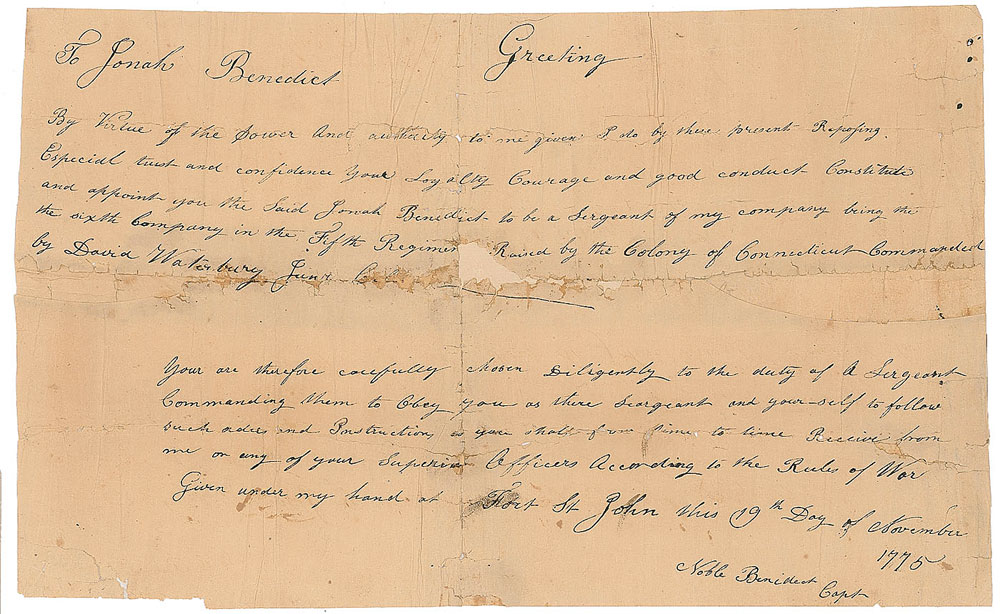 To Jonah Benedict Greeting
By Virtue of the Power And authority to me given I do by these present Reposing
Especial trust and confidence Your Loyalty Courage and good conduct Constitute
and appoint you the Said Jonah Benedict to be a Sergeant of my company being the
the sixth Company in the Fifth Regimen Raised by the Colony of Connecticut Commanded
by David Waterbury Junr
Your are therefore carefully chosen Diligently to the duty of A Sergeant
Commanding them to Obey you as there Seargeant and your-self to follow
such orders and Instruction as you shall from time to time Receive from
me or any of your Superior Officers According to the Rules of War
Given under my hand at Fort St John this 19th Day of November
1775
Noble Benedict
Capt